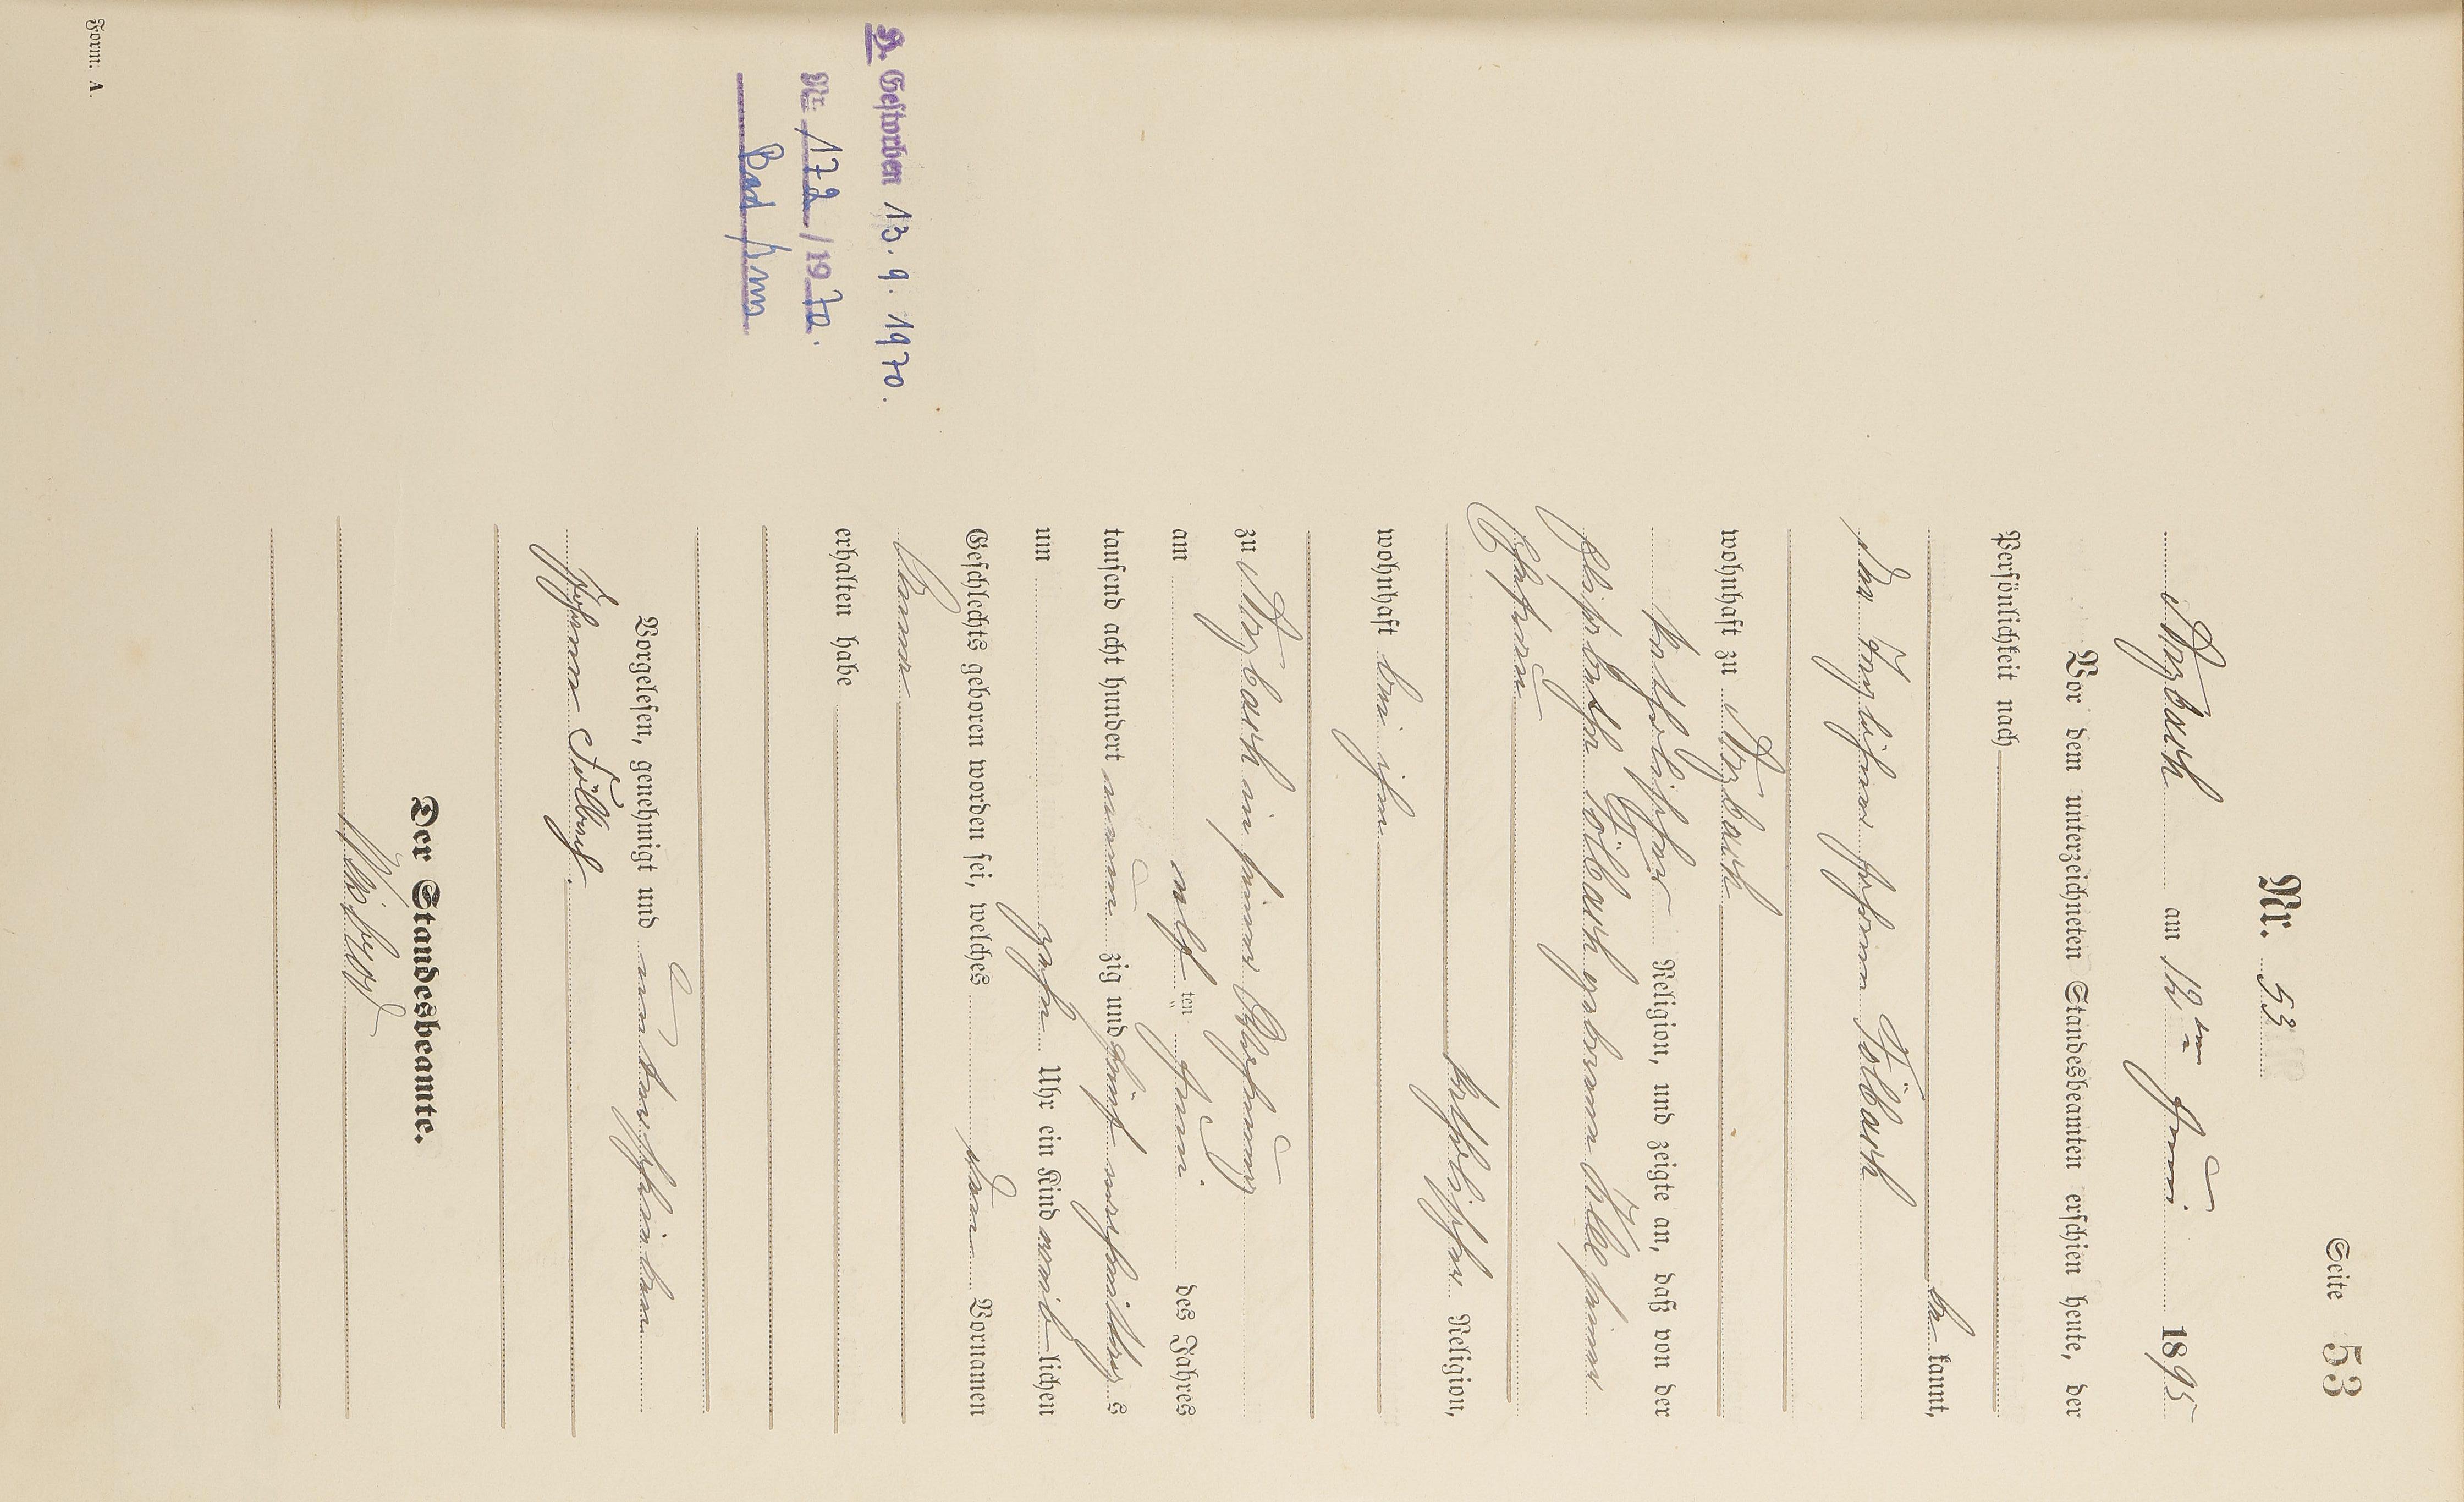 Seite 53
Nr. 53
Arzbach am 12ten Juni 1895
Vor dem unterzeichneten Standesbeamten erschien heute, der
Persönlichkeit nach
be kannt,
der Taglöhner Johann Fölbach
wohnhaft zu Arzbach
katholischer Religion, und zeigte an, daß von der
Fölbach geborene seiner
Ehefrau
katholischer Religion,
wohnhaft bei ihm
zu Arzbach in seiner Wohnung
am elf ten Juni des Jahres
tausend acht hundert neun zig und fünf vormittags
um zehn Uhr ein Kind weib lichen
Geschlechts geboren worden sei, welches den Vornamen
Anna
erhalten habe
Vorgelesen, genehmigt und unterschrieben
Johann Fölbach.
Der Standesbeamte.
D. Gestorben 13. 9. 1970.
Nr. 172/1970.
Bad Ems
Form. A.